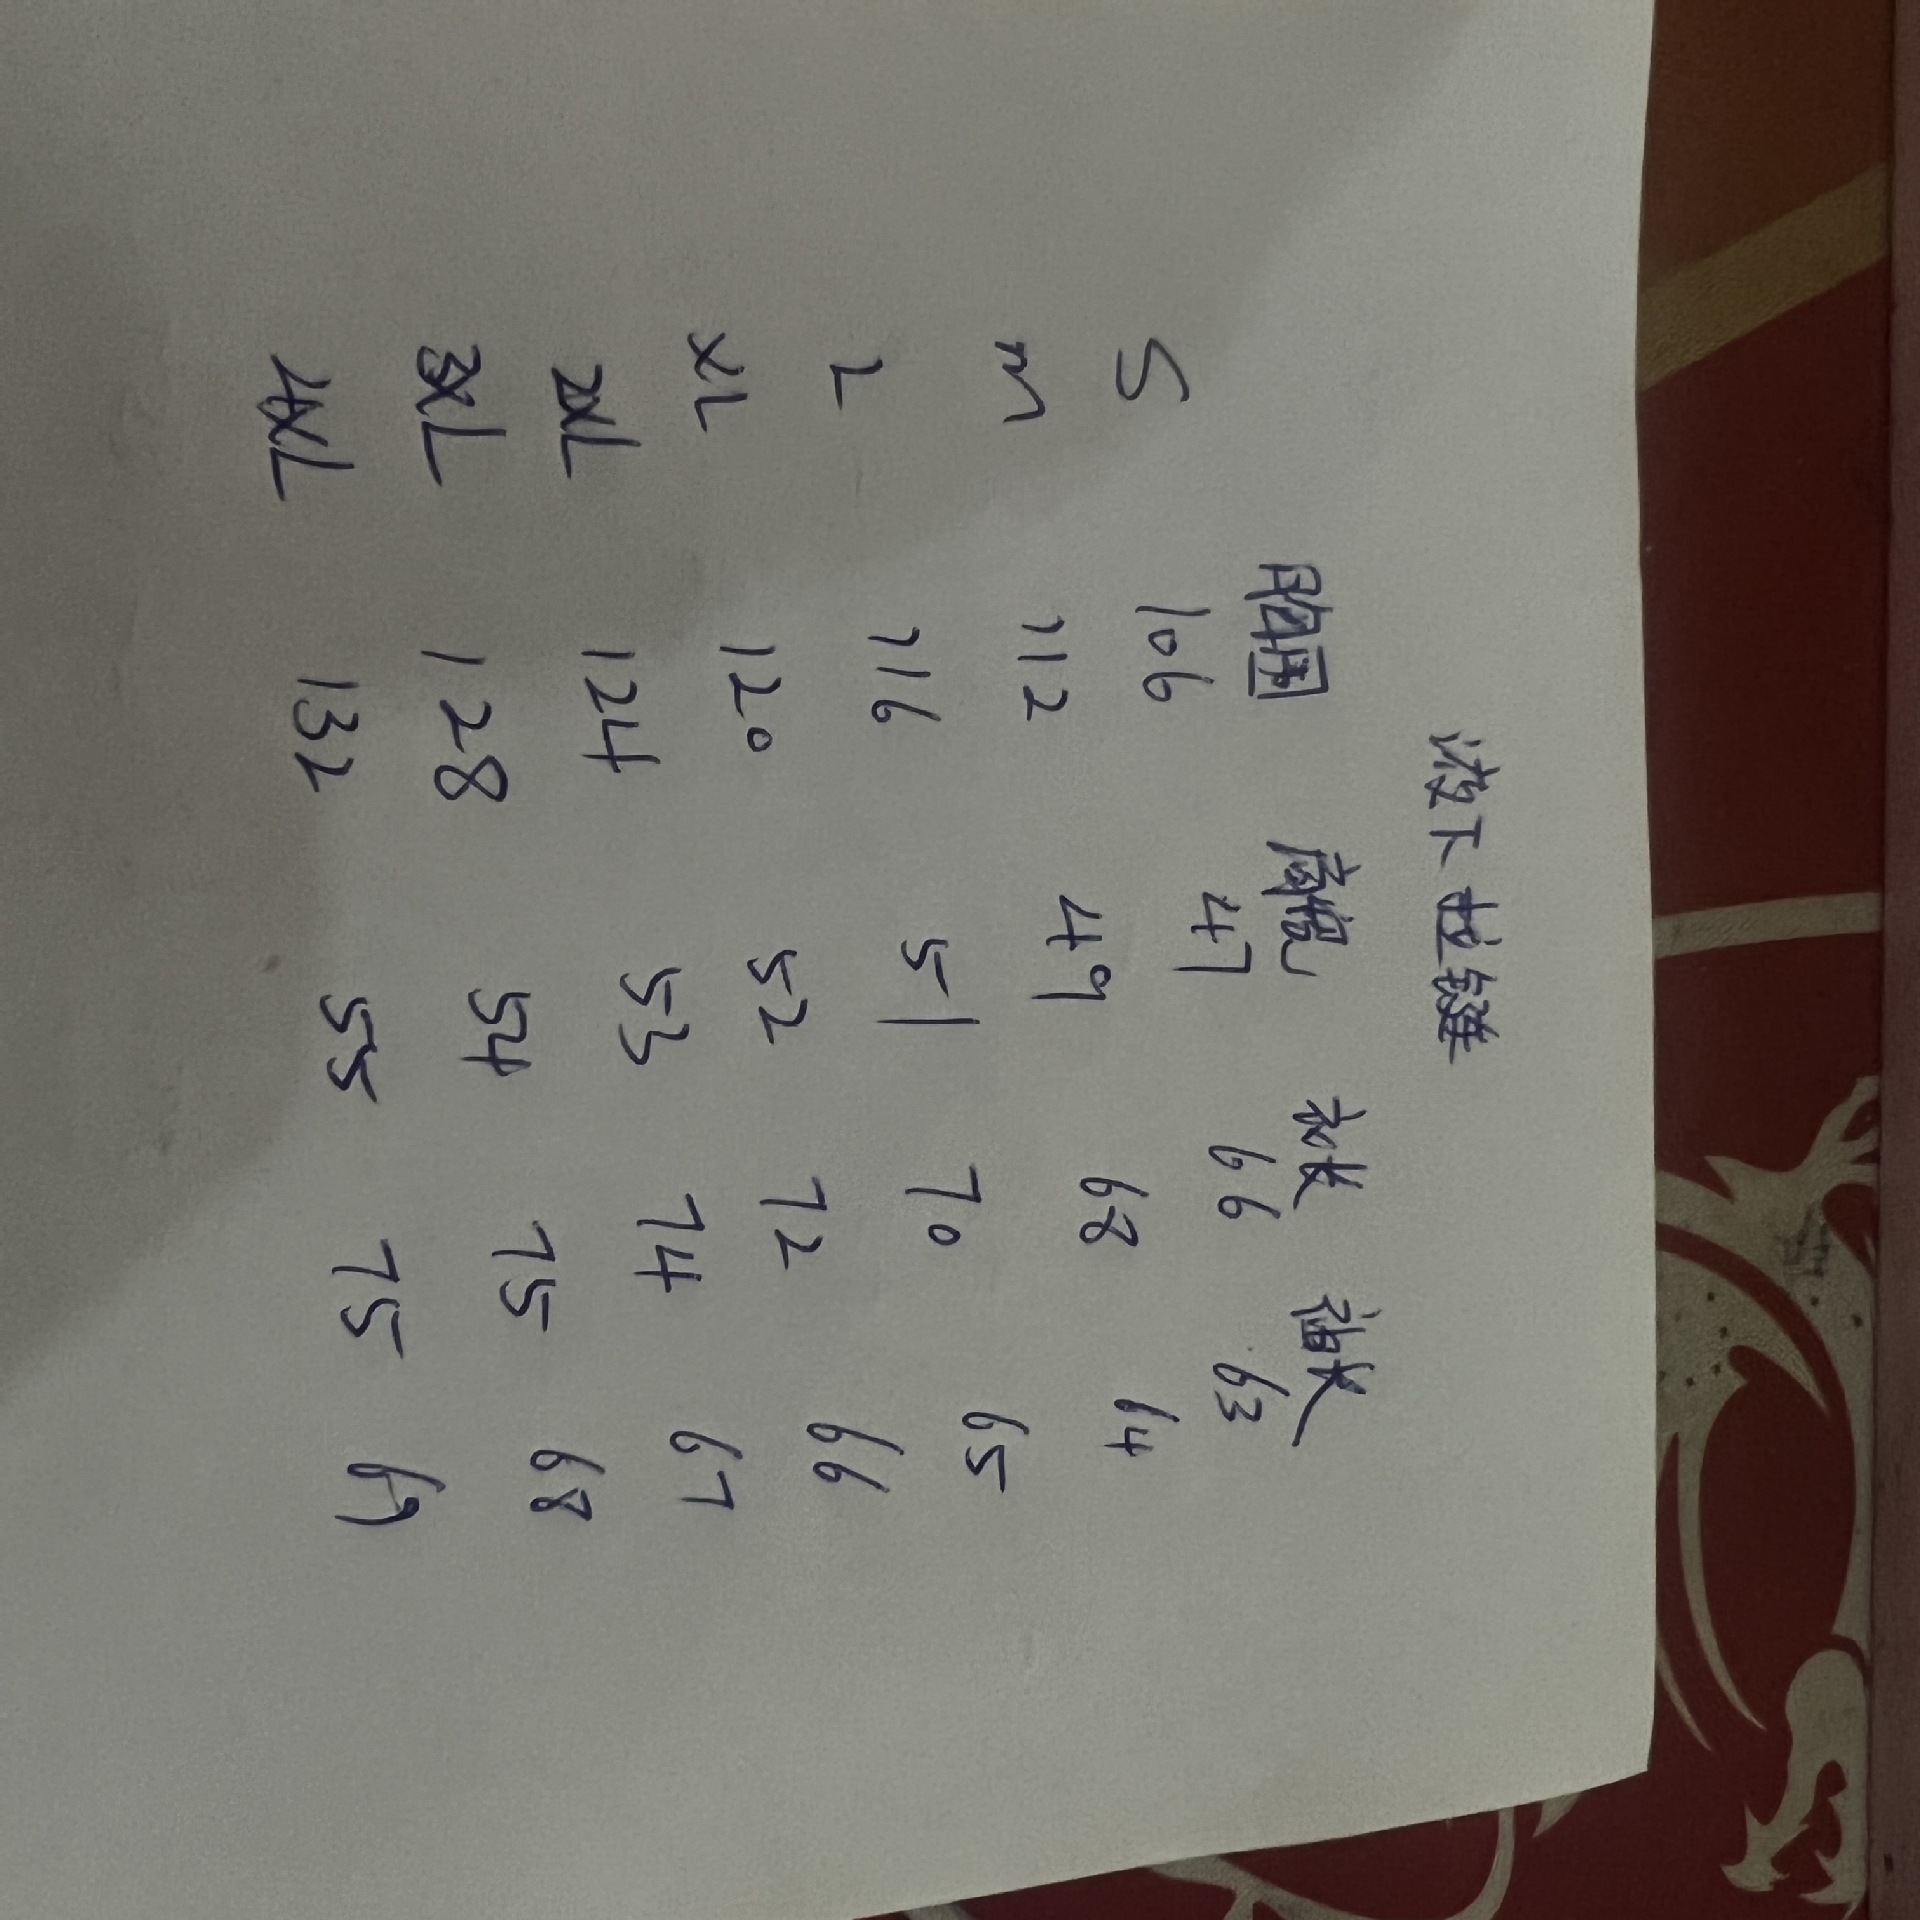 腋下拉鏈
胸围 肩寬 衣长 袖长
S 106 47 66 63
M 112 49 68 64
L 116 51 70 65
XL 120 52 72 66
2XL 124 53 74 67
3XL 128 54 75 68
4XL 132 55 75 69